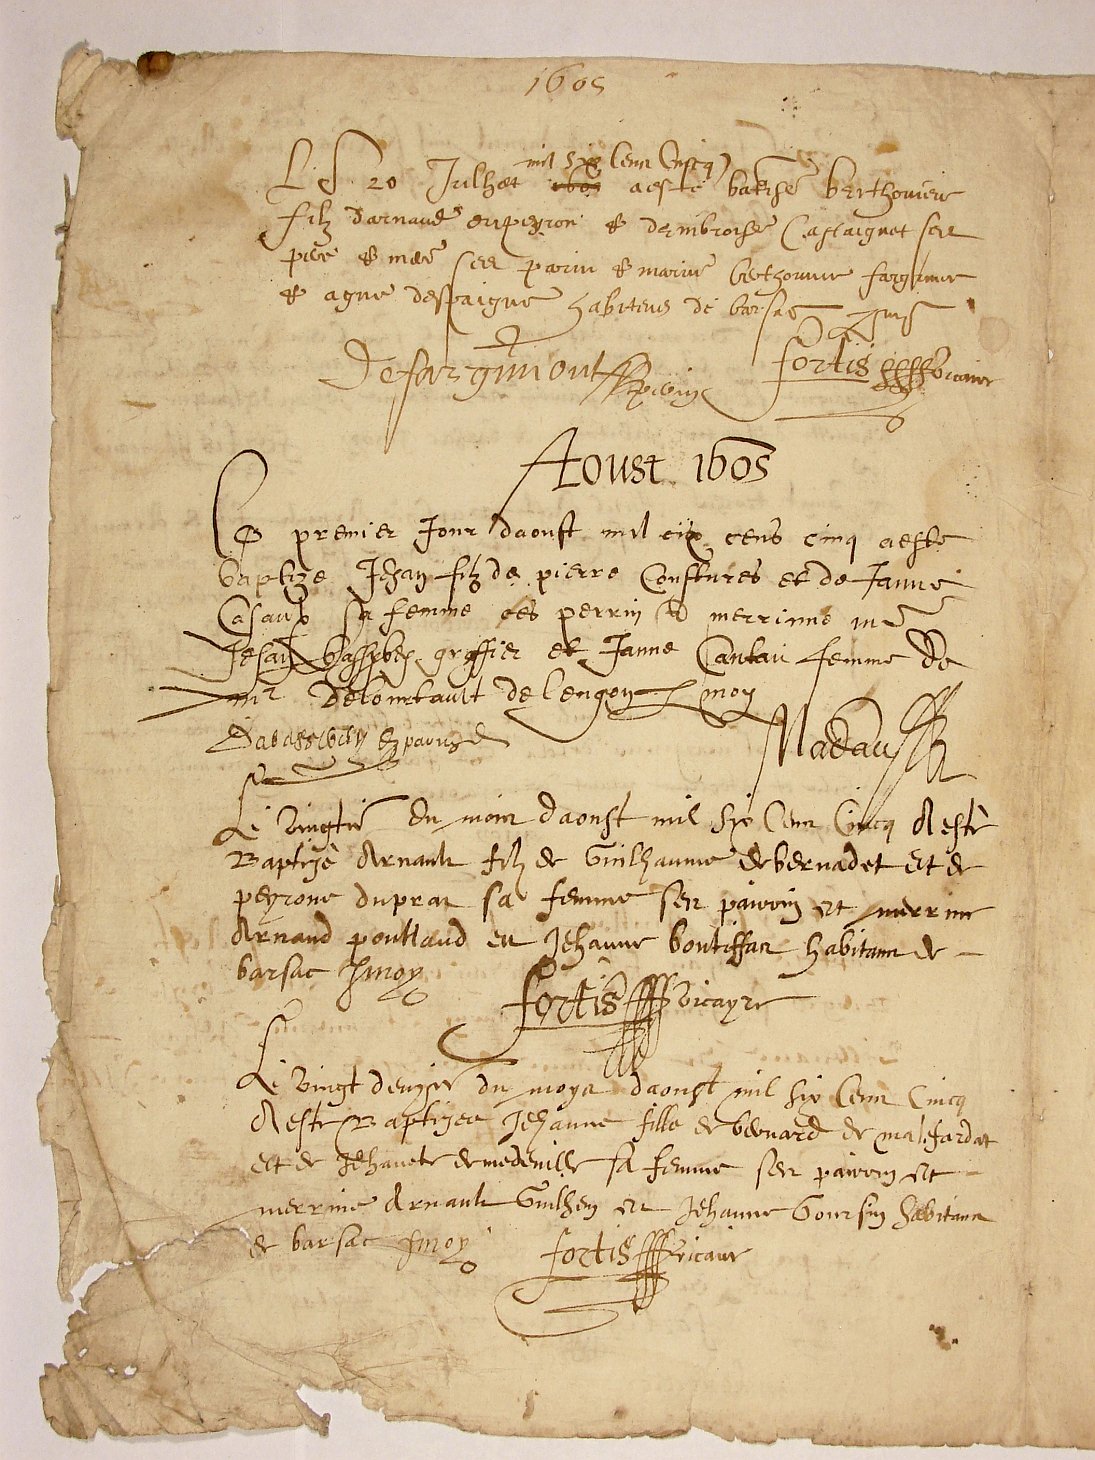 1605
Le 20 Julhet mil six cens cincq a esté baptisé berthomieu
filz d'arnaud dupeyron et d'ambroise Castaignet ses
pere et mere ses parin et marine berthomieu
et agne despaigne habitens de barsac
Defargimont parin fortis vicaire
Aoust 1605
Le premier Jour daoust mil six cens cinq a este
baptize Jehan filz de pierre Coustures et de Janne
Casaus sa femme ces perrin et merrinne me
Jesan greffier et Janne Cantau femme de
de Lengon moy
Madau
Le vingtie du mois daoust mil six cens Cincq A esté
Baptizé Arnault filz de Guilhaume de bernadet Et de
peyrone duprat sa femme ses pairrin et merrine
Arnaud poultaud et Jehanne boutiffar habitans de
barsac pnt moy
fortis vicayre
Le vingt deuxie du moys daoust mil six cens Cincq
A este Baptizee Jehanne fille de bernard de malefardat
Et de Jehanete demedeville sa femme ses pairrin et
merrine Arnault Guilhem et Jehanne Goursin habitans
de barsac pnt moy fortis vicaire